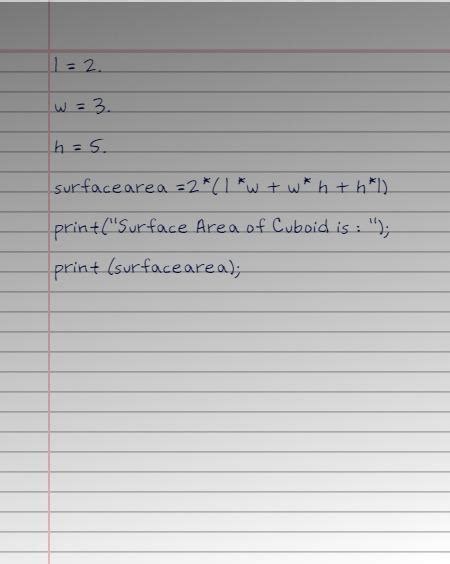 l = 2.
w = 3.
h = 5.
surfacearea =2*(l *w + w* h + h*l)
print("Surface Area of Cuboid is : ");
print (surfacearea);